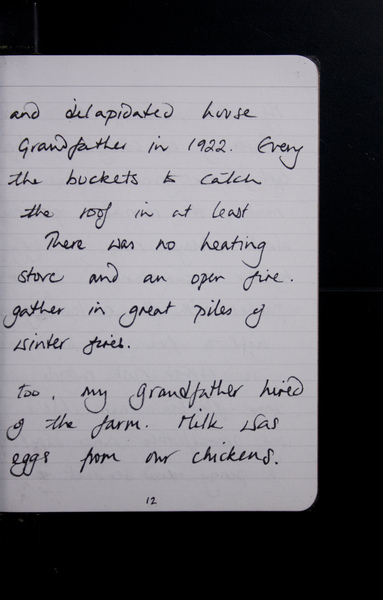 and delapidated house
Grandfather in 1922. Every
the buckets to catch
the roof in at least
There was no heating
stove and an open fire.
gather in great piles of
winter fires.
too, my grandfather hired
of the farm. Milk was
eggs from our chickens.
12